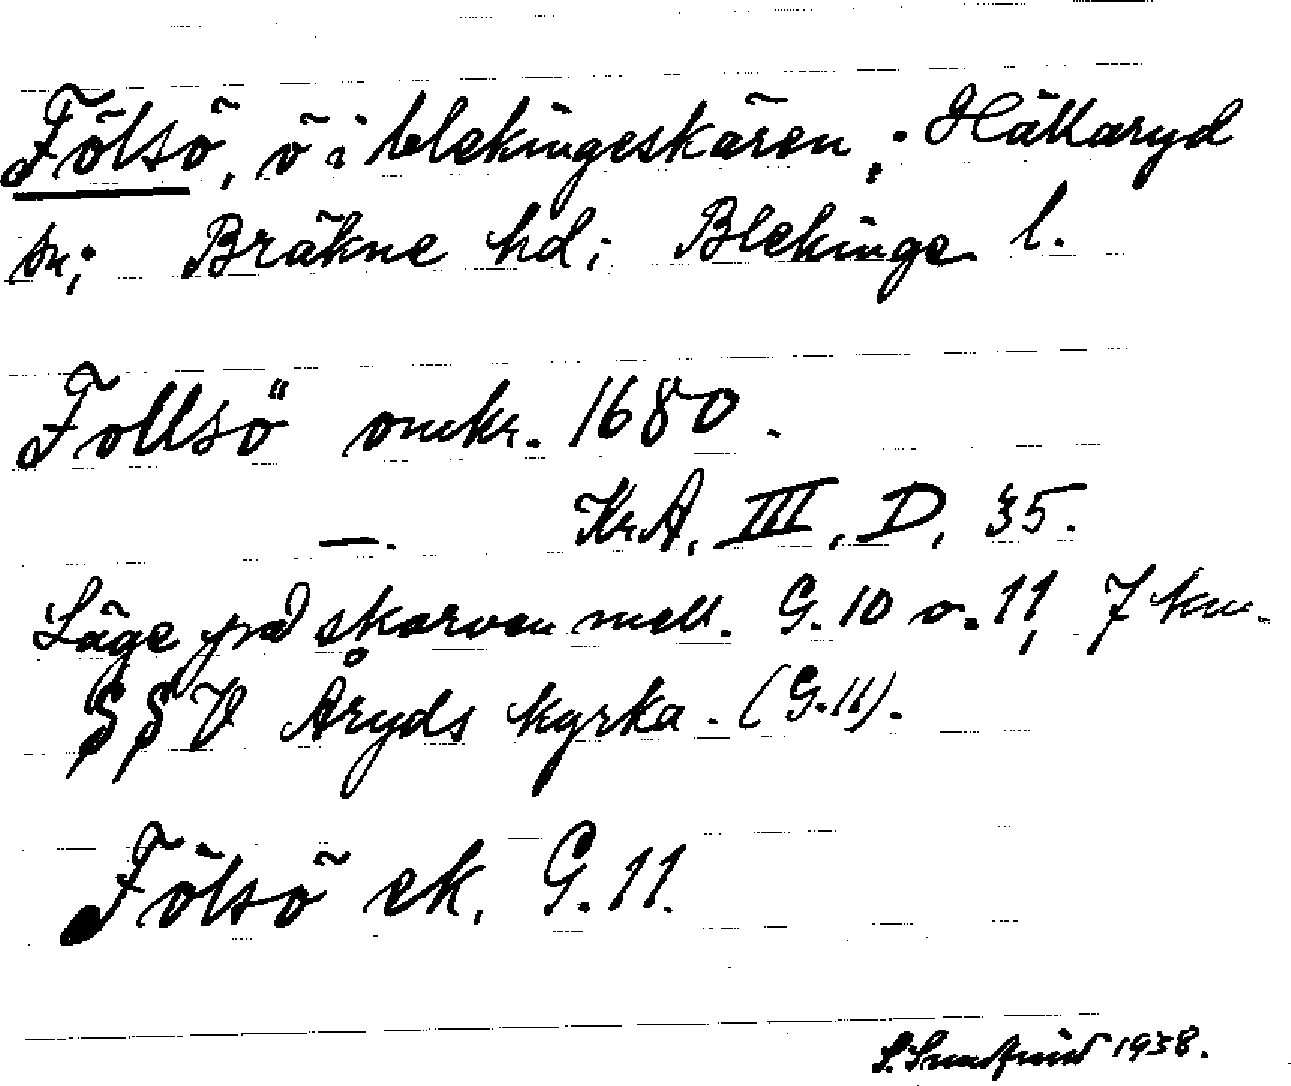 Fölsö, ö i blekingeskären; Hällaryd
sn; Bräkne hd; Blekinge l.
Follsö omkr. 1680.
—. KrA, III, D, 35.
Läge på skarven mell. G.10 o. 11, 7 km.
S S V Åryds kyrka. (G.11).
Fölsö ek. G.11.
1938.